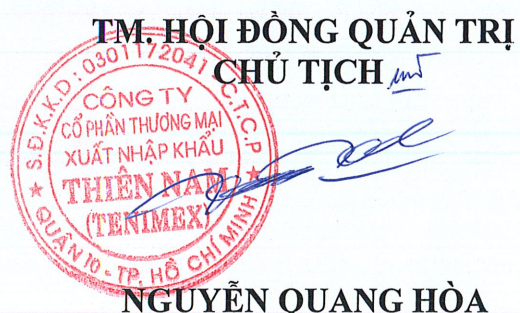 TM. HỘI ĐỒNG QUẢN TRỊ
CHỦ TỊCH
S.Đ.K.K.D: 0301172041 - C.T.C.P
CÔNG TY
CỔ PHẦN THƯƠNG MẠI
XUẤT NHẬP KHẨU
THIÊN NAM
(TENIMEX)
QUẬN 10 - TP. HỒ CHÍ MINH
NGUYỄN QUANG HÒA